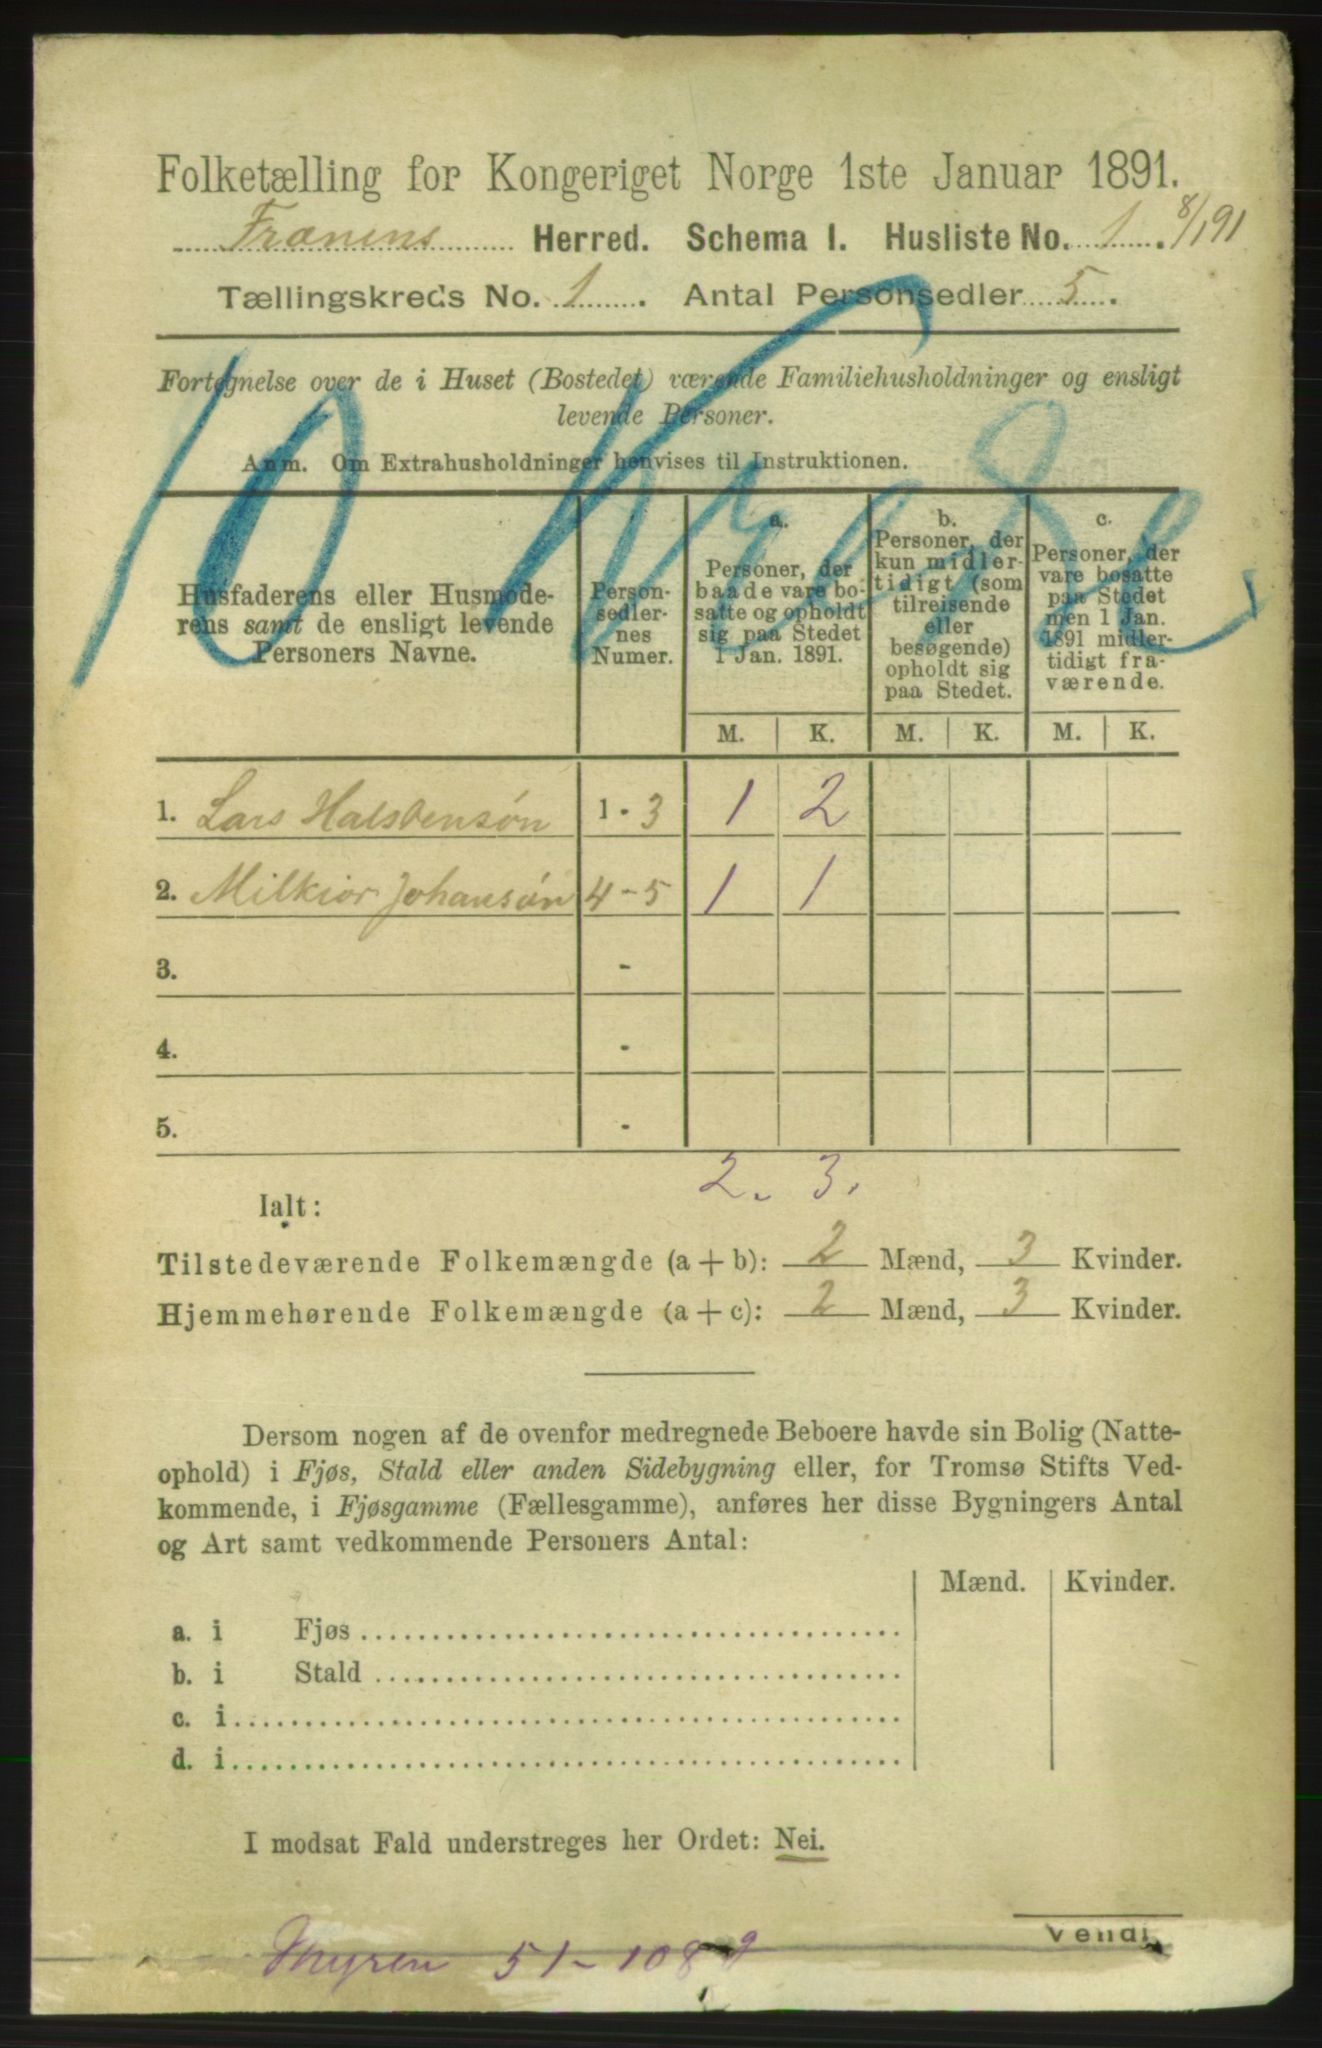 Folketælling for Kongeriget Norge 1ste Januar 1891.
Frænens Herred. Schema I. Husliste No. 1. 8/1 91
Tællingskreds No. 1. Antal Personsedler 5.
10 Kreds
Fortegnelse over de i Huset (Bostedet) værende Familiehusholdninger og ensligt
levende Personer.
Anm. Om Extrahusholdninger henvises til Instruktionen.
Husfaderens eller Husmode-
rens samt de ensligt levende
Personers Navne.
Person-
sedler-
nes
Numer.
a.
Personer, der
baade vare bo-
satte og opholdt
sig paa Stedet
1 Jan. 1891.
b.
Personer, der
kun midler-
tidigt (som
tilreisende
eller
besøgende)
opholdt sig
paa Stedet.
c.
Personer, der
vare bosatte
paa Stedet
men 1 Jan.
1891 midler-
tidigt fra-
værende.
M. K. M. K. M. K.
1. Lars Halstensøn 1 - 3 1 2
2. Milkior Johansøn 4 - 5 1 1
3. -
4. -
5. -
2. 3.
Ialt:
Tilstedeværende Folkemængde (a + b): 2 Mænd, 3 Kvinder.
Hjemmehørende Folkemængde (a + c): 2 Mænd, 3 Kvinder.
Dersom nogen af de ovenfor medregnede Beboere havde sin Bolig (Natte-
ophold) i Fjøs, Stald eller anden Sidebygning eller, for Tromsø Stifts Ved-
kommende, i Fjøsgamme (Fællesgamme), anføres her disse Bygningers Antal
og Art samt vedkommende Personers Antal:
Mænd. Kvinder.
a. i Fjøs
b. i Stald
c. i
d. i
I modsat Fald understreges her Ordet: Nei.
Vend!
Myren 51-108